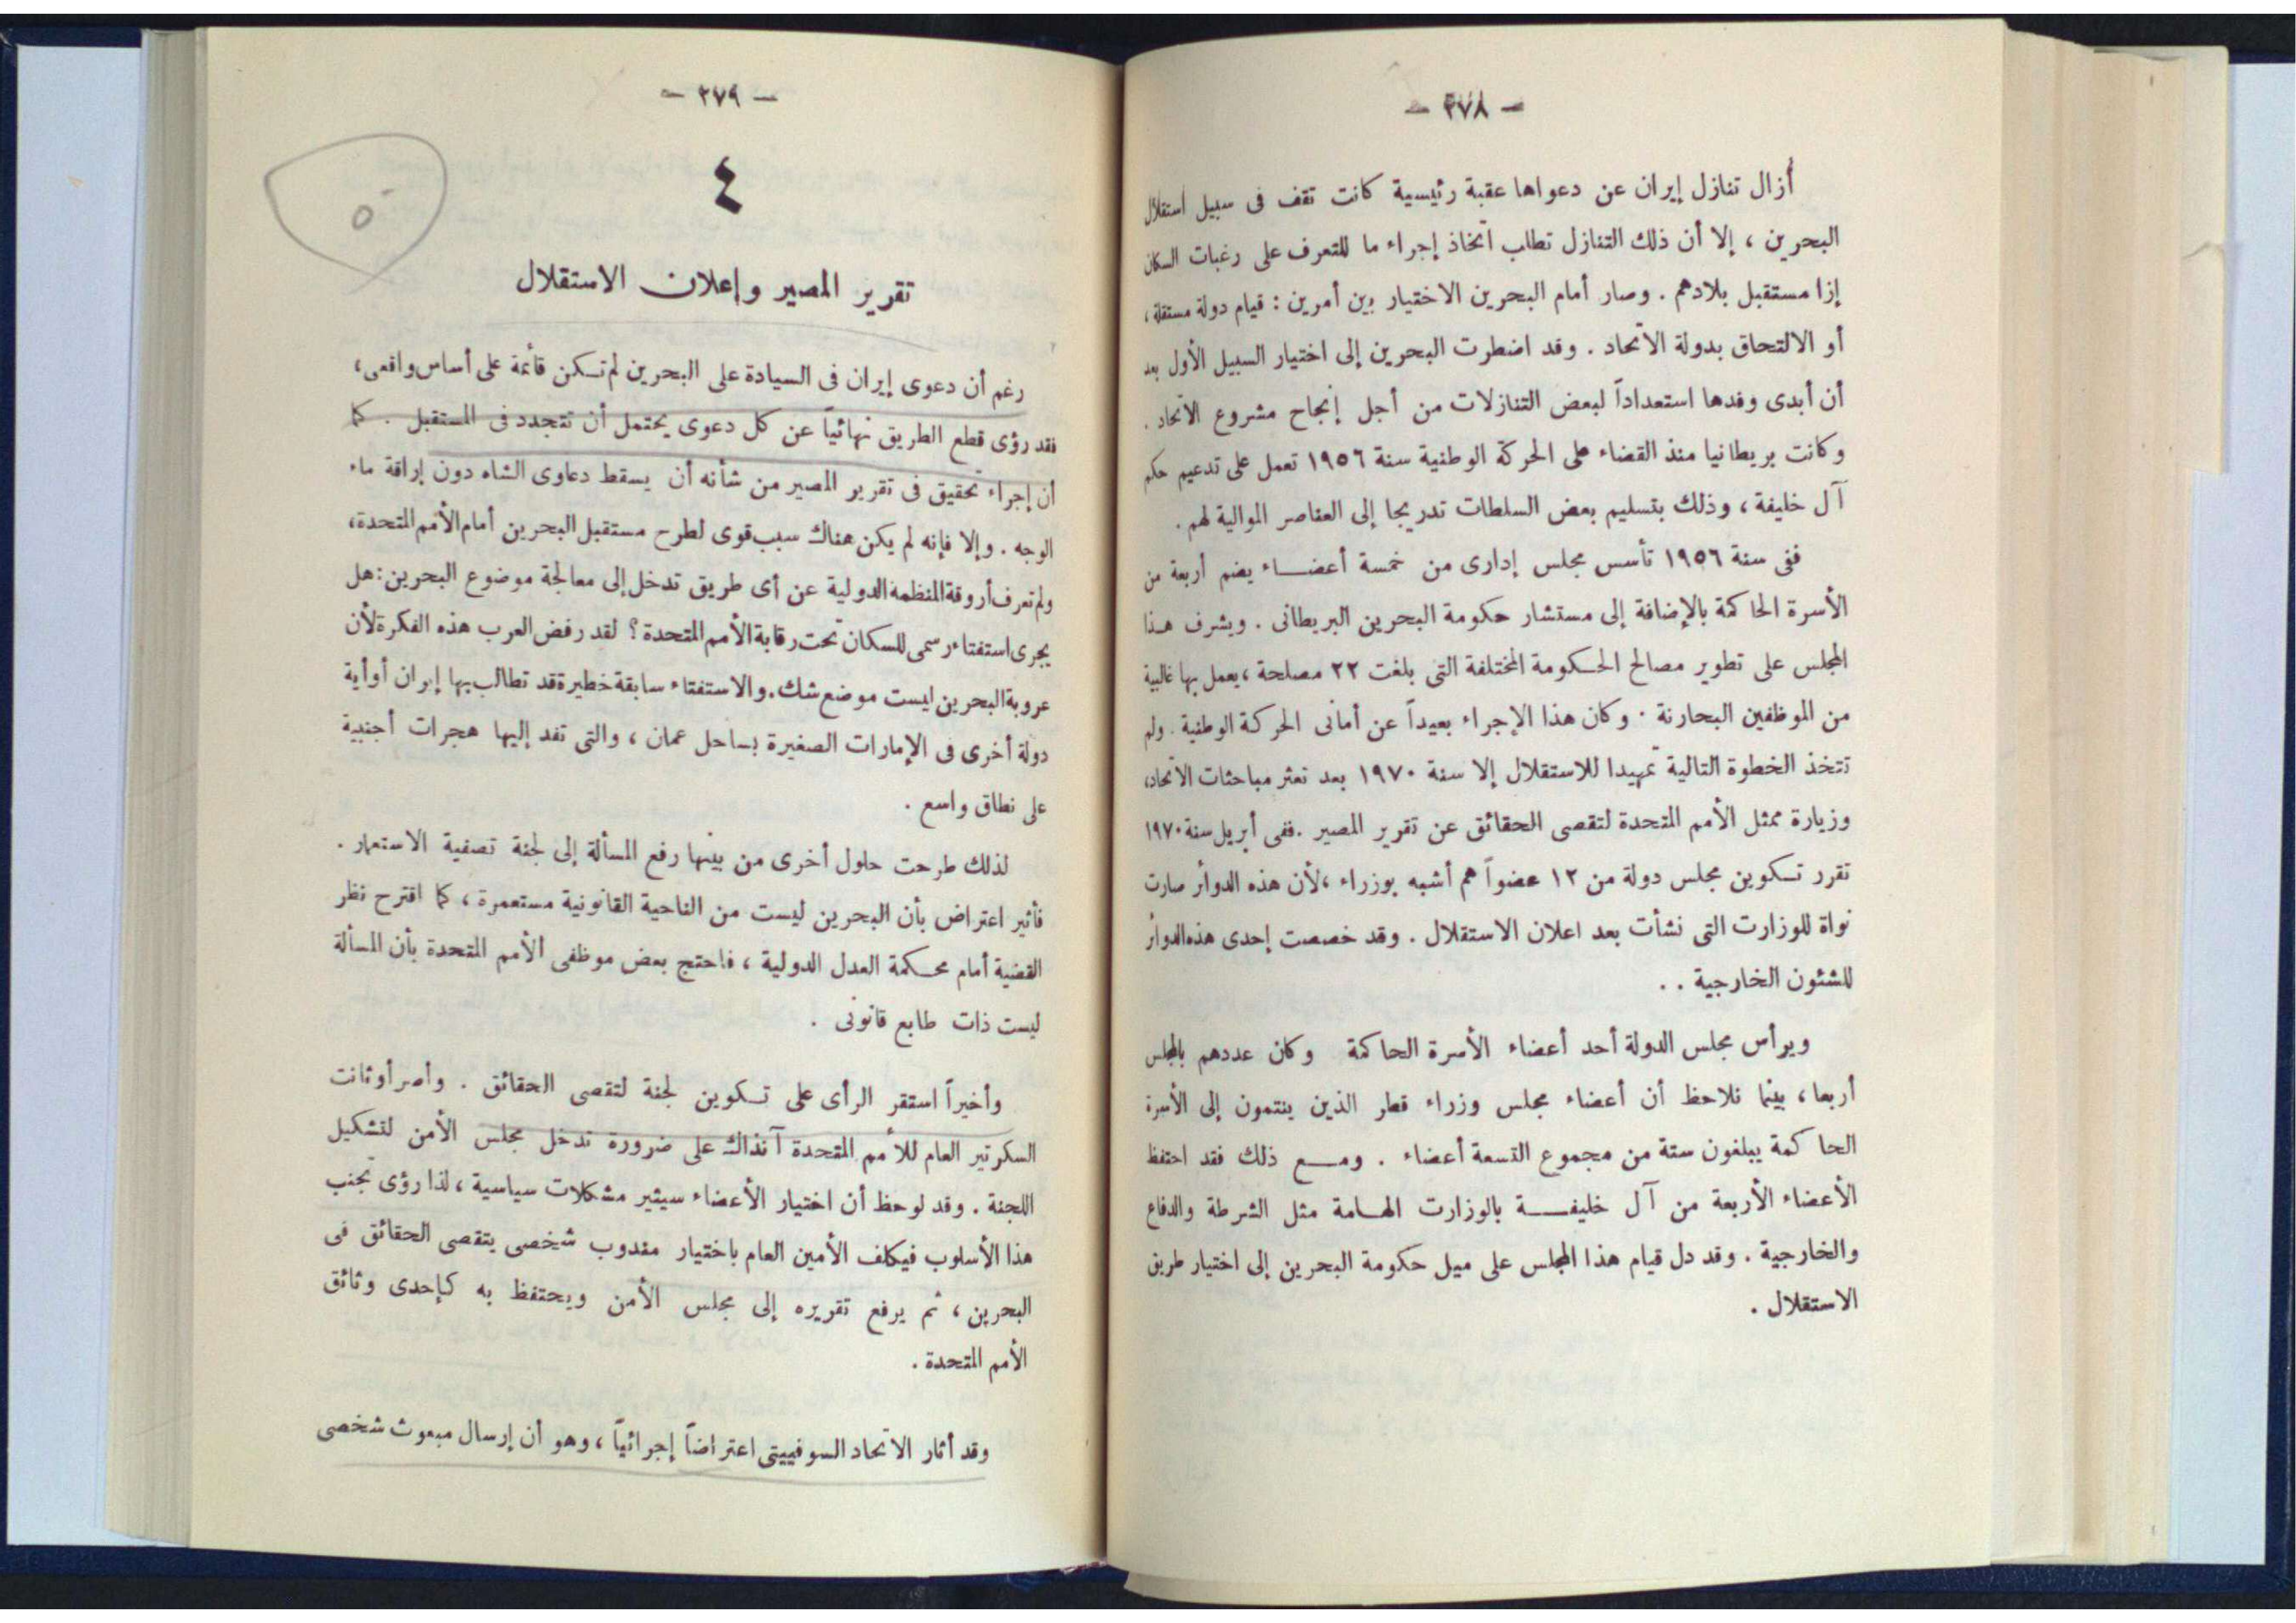 — ٣٧٨ —
أزال تنازل إيران عن دعواها عقبة رئيسية كانت تقف فى سبيل استقلال
البحرين ، إلا أن ذلك التنازل تطلب اتخاذ إجراء ما للتعرف على رغبات السكان
إزا مستقبل بلادهم . وصار أمام البحرين الاختيار بين أمرين : قيام دولة مستقلة ،
أو الالتحاق بدولة الاتحاد . وقد اضطرت البحرين إلى اختيار السبيل الأول بعد
أن أبدى وفدها استعداداً لبعض التنازلات من أجل إنجاح مشروع الاتحاد .
وكانت بريطانيا منذ القضاء على الحركة الوطنية سنة ١٩٥٦ تعمل على تدعيم حكم
آل خليفة ، وذلك بتسليم بعض السلطات تدريجا إلى العناصر الموالية لهم .
ففى سنة ١٩٥٦ تأسس مجلس إدارى من خمسة أعضاء يضم أربعة من
الأسرة الحاكمة بالإضافة إلى مستشار حكومة البحرين البريطانى . ويشرف هذا
المجلس على تطوير مصالح الحكومة المختلفة التى بلغت ٢٢ مصلحة ، يعمل بها غالبية
من الموظفين البحارنة . وكان هذا الإجراء بعيداً عن أمانى الحركة الوطنية . ولم
تتخذ الخطوة التالية تمهيدا للاستقلال إلا سنة ١٩٧٠ بعد تعثر مباحثات الاتحاد،
وزيارة ممثل الأمم المتحدة لتقصى الحقائق عن تقرير المصير . ففى أبريل سنة ١٩٧٠
تقرر تكوين مجلس دولة من ١٢ عضواً هم أشبه بوزراء ، لأن هذه الدوائر صارت
نواة للوزارت التى نشأت بعد اعلان الاستقلال . وقد خصصت إحدى هذه الدوائر
للشئون الخارجية . .
ويرأس مجلس الدولة أحد أعضاء الأسرة الحاكمة وكان عددهم بالمجلس
أربعا ، بينما نلاحظ أن أعضاء مجلس وزراء قطر الذين ينتمون إلى الأسرة
الحاكمة يبلغون ستة من مجموع التسعة أعضاء . ومع ذلك فقد احتفظ
الأعضاء الأربعة من آل خليفة بالوزارت الهامة مثل الشرطة والدفاع
والخارجية . وقد دل قيام هذا المجلس على ميل حكومة البحرين إلى اختيار طريق
الاستقلال .
— ٣٧٩ —
٥
٤
تقرير المصير وإعلان الاستقلال
رغم أن دعوى إيران فى السيادة على البحرين لم تكن قائمة على أساس واقعى ،
فقد رؤى قطع الطريق نهائياً عن كل دعوى يحتمل أن تتجدد فى المستقبل . كما
أن إجراء تحقيق فى تقرير المصير من شأنه أن يسقط دعاوى الشاه دون إراقة ماء
الوجه . وإلا فإنه لم يكن هناك سبب قوى لطرح مستقبل البحرين أمام الأمم المتحدة،
ولم تعرف أروقة المنظمة الدولية عن أى طريق تدخل إلى معالجة موضوع البحرين : هل
يجرى استفتاء رسمى للسكان تحت رقابة الأمم المتحدة ؟ لقد رفض العرب هذه الفكرة لأن
عروبة البحرين ليست موضع شك . والاستفتاء سابقة خطيرة قد تطالب بها إيران أو أية
دولة أخرى فى الإمارات الصغيرة بساحل عمان ، والتى تفد إليها هجرات أجنبية
على نطاق واسع .
لذلك طرحت حلول أخرى من بينها رفع المسألة إلى لجنة تصفية الاستعمار .
فأثير اعتراض بأن البحرين ليست من الناحية القانونية مستعمرة ، كما اقترح نظر
القضية أمام محكمة العدل الدولية ، فاحتج بعض موظفى الأمم المتحدة بأن المسألة
ليست ذات طابع قانونى .
وأخيراً استقر الرأى على تكوين لجنة لتقصى الحقائق . وأصر أوثانت
السكرتير العام للأمم المتحدة آنذاك على ضرورة تدخل مجلس الأمن لتشكيل
اللجنة . وقد لوحظ أن اختيار الأعضاء سيثير مشكلات سياسية ، لذا رؤى تجنب
هذا الأسلوب فيكلف الأمين العام باختيار مندوب شخصى يتقصى الحقائق فى
البحرين ، ثم يرفع تقريره إلى مجلس الأمن ويحتفظ به كإحدى وثائق
الأمم المتحدة .
وقد أثار الاتحاد السوفييتى اعتراضاً إجرائياً ، وهو أن إرسال مبعوث شخصى